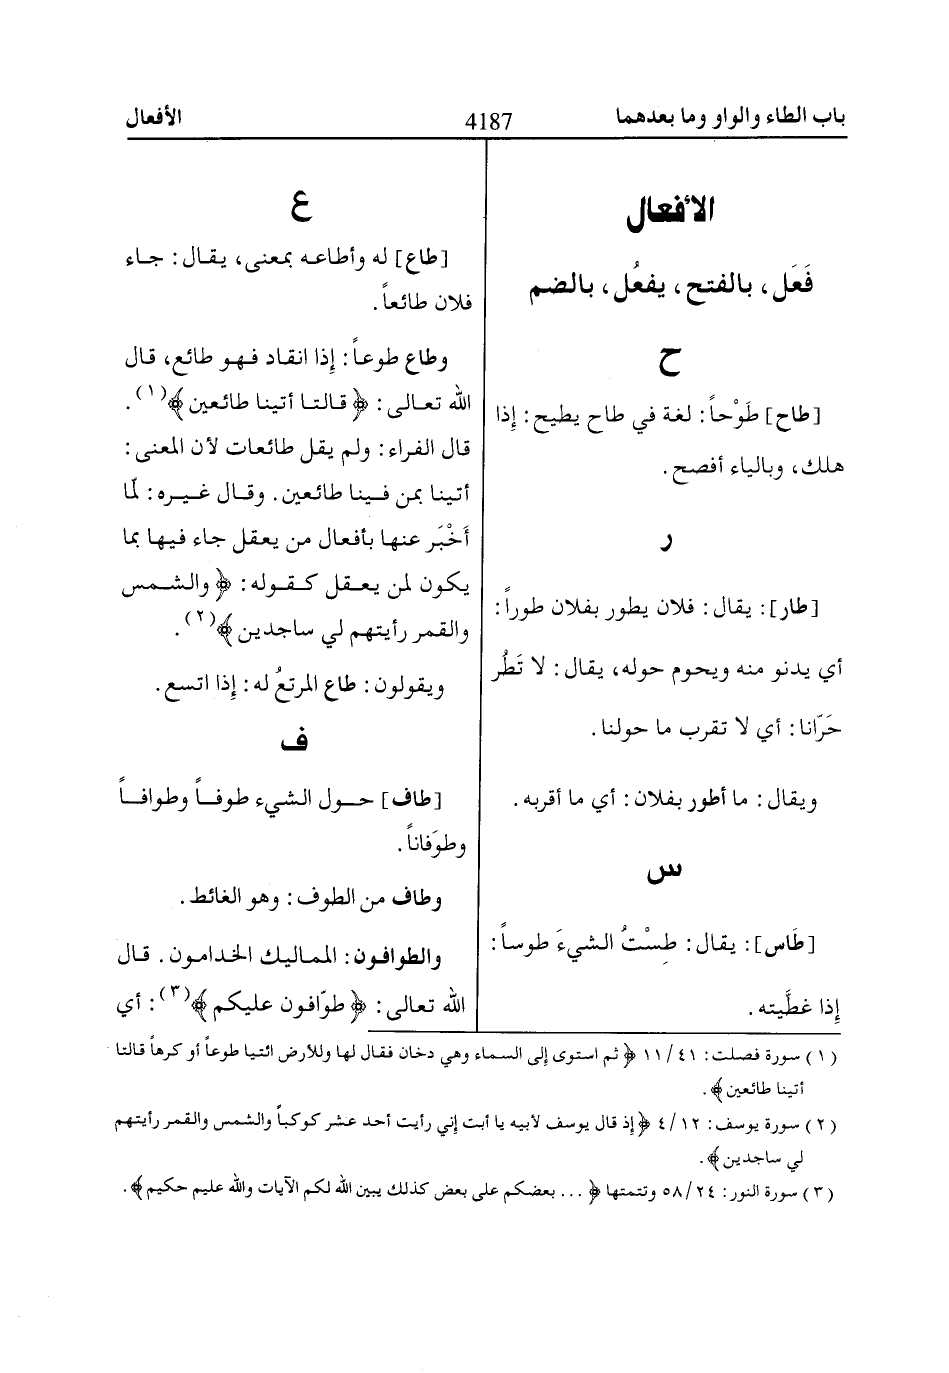 باب الطاء والواو وما بعدهما
4187
الأفعال
الأفعال
فَعَل، بالفتح، يفعُل، بالضم
ح
[طاح] طَوْحاً: لغة في طاح يطيح: إذا
هلك، وبالياء أفصح.
ر
[طار]: يقال: فلان يطور بفلان طوراً:
أي يدنو منه ويحوم حوله، يقال: لا تَطُر
حَرّانا: أي لا تقرب ما حولنا.
ويقال: ما أطور بفلان: أي ما أقربه.
س
[طَاس]: يقال: طِسْتُ الشيءَ طوساً:
إذا غطَّيته.
ع
[طاع] له وأطاعه بمعنى، يقال: جاء
فلان طائعاً.
وطاع طوعاً: إذا انقاد فهو طائع، قال
الله تعالى: ﴿ قالتا أتينا طائعين ﴾(١).
قال الفراء: ولم يقل طائعات لأن المعنى:
أتينا بمن فينا طائعين. وقال غيره: لمّا
أَخْبَر عنها بأفعال من يعقل جاء فيها بما
يكون لمن يعقل كقوله: ﴿ والشمس
والقمر رأيتهم لي ساجدين ﴾(٢).
ويقولون: طاع المرتعُ له: إذا اتسع.
ف
[طاف] حول الشيء طوفاً وطوافاً
وطوَفاناً.
وطاف من الطوف: وهو الغائط.
والطوافون: المماليك الخدامون. قال
الله تعالى: ﴿ طوّافون عليكم ﴾(٣): أي
(١) سورة فصلت: ١١/٤١ ﴿ ثم استوى إلى السماء وهي دخان فقال لها وللأرض ائتيا طوعاً أو كرهاً قالتا
أتينا طائعين ﴾.
(٢) سورة يوسف: ٤/١٢ ﴿ إذ قال يوسف لأبيه يا أبت إني رأيت أحد عشر كوكباً والشمس والقمر رأيتهم
لي ساجدين ﴾.
(٣) سورة النور: ٥٨/٢٤ وتتمتها ﴿ ... بعضكم على بعض كذلك يبين الله لكم الآيات والله عليم حكيم ﴾.